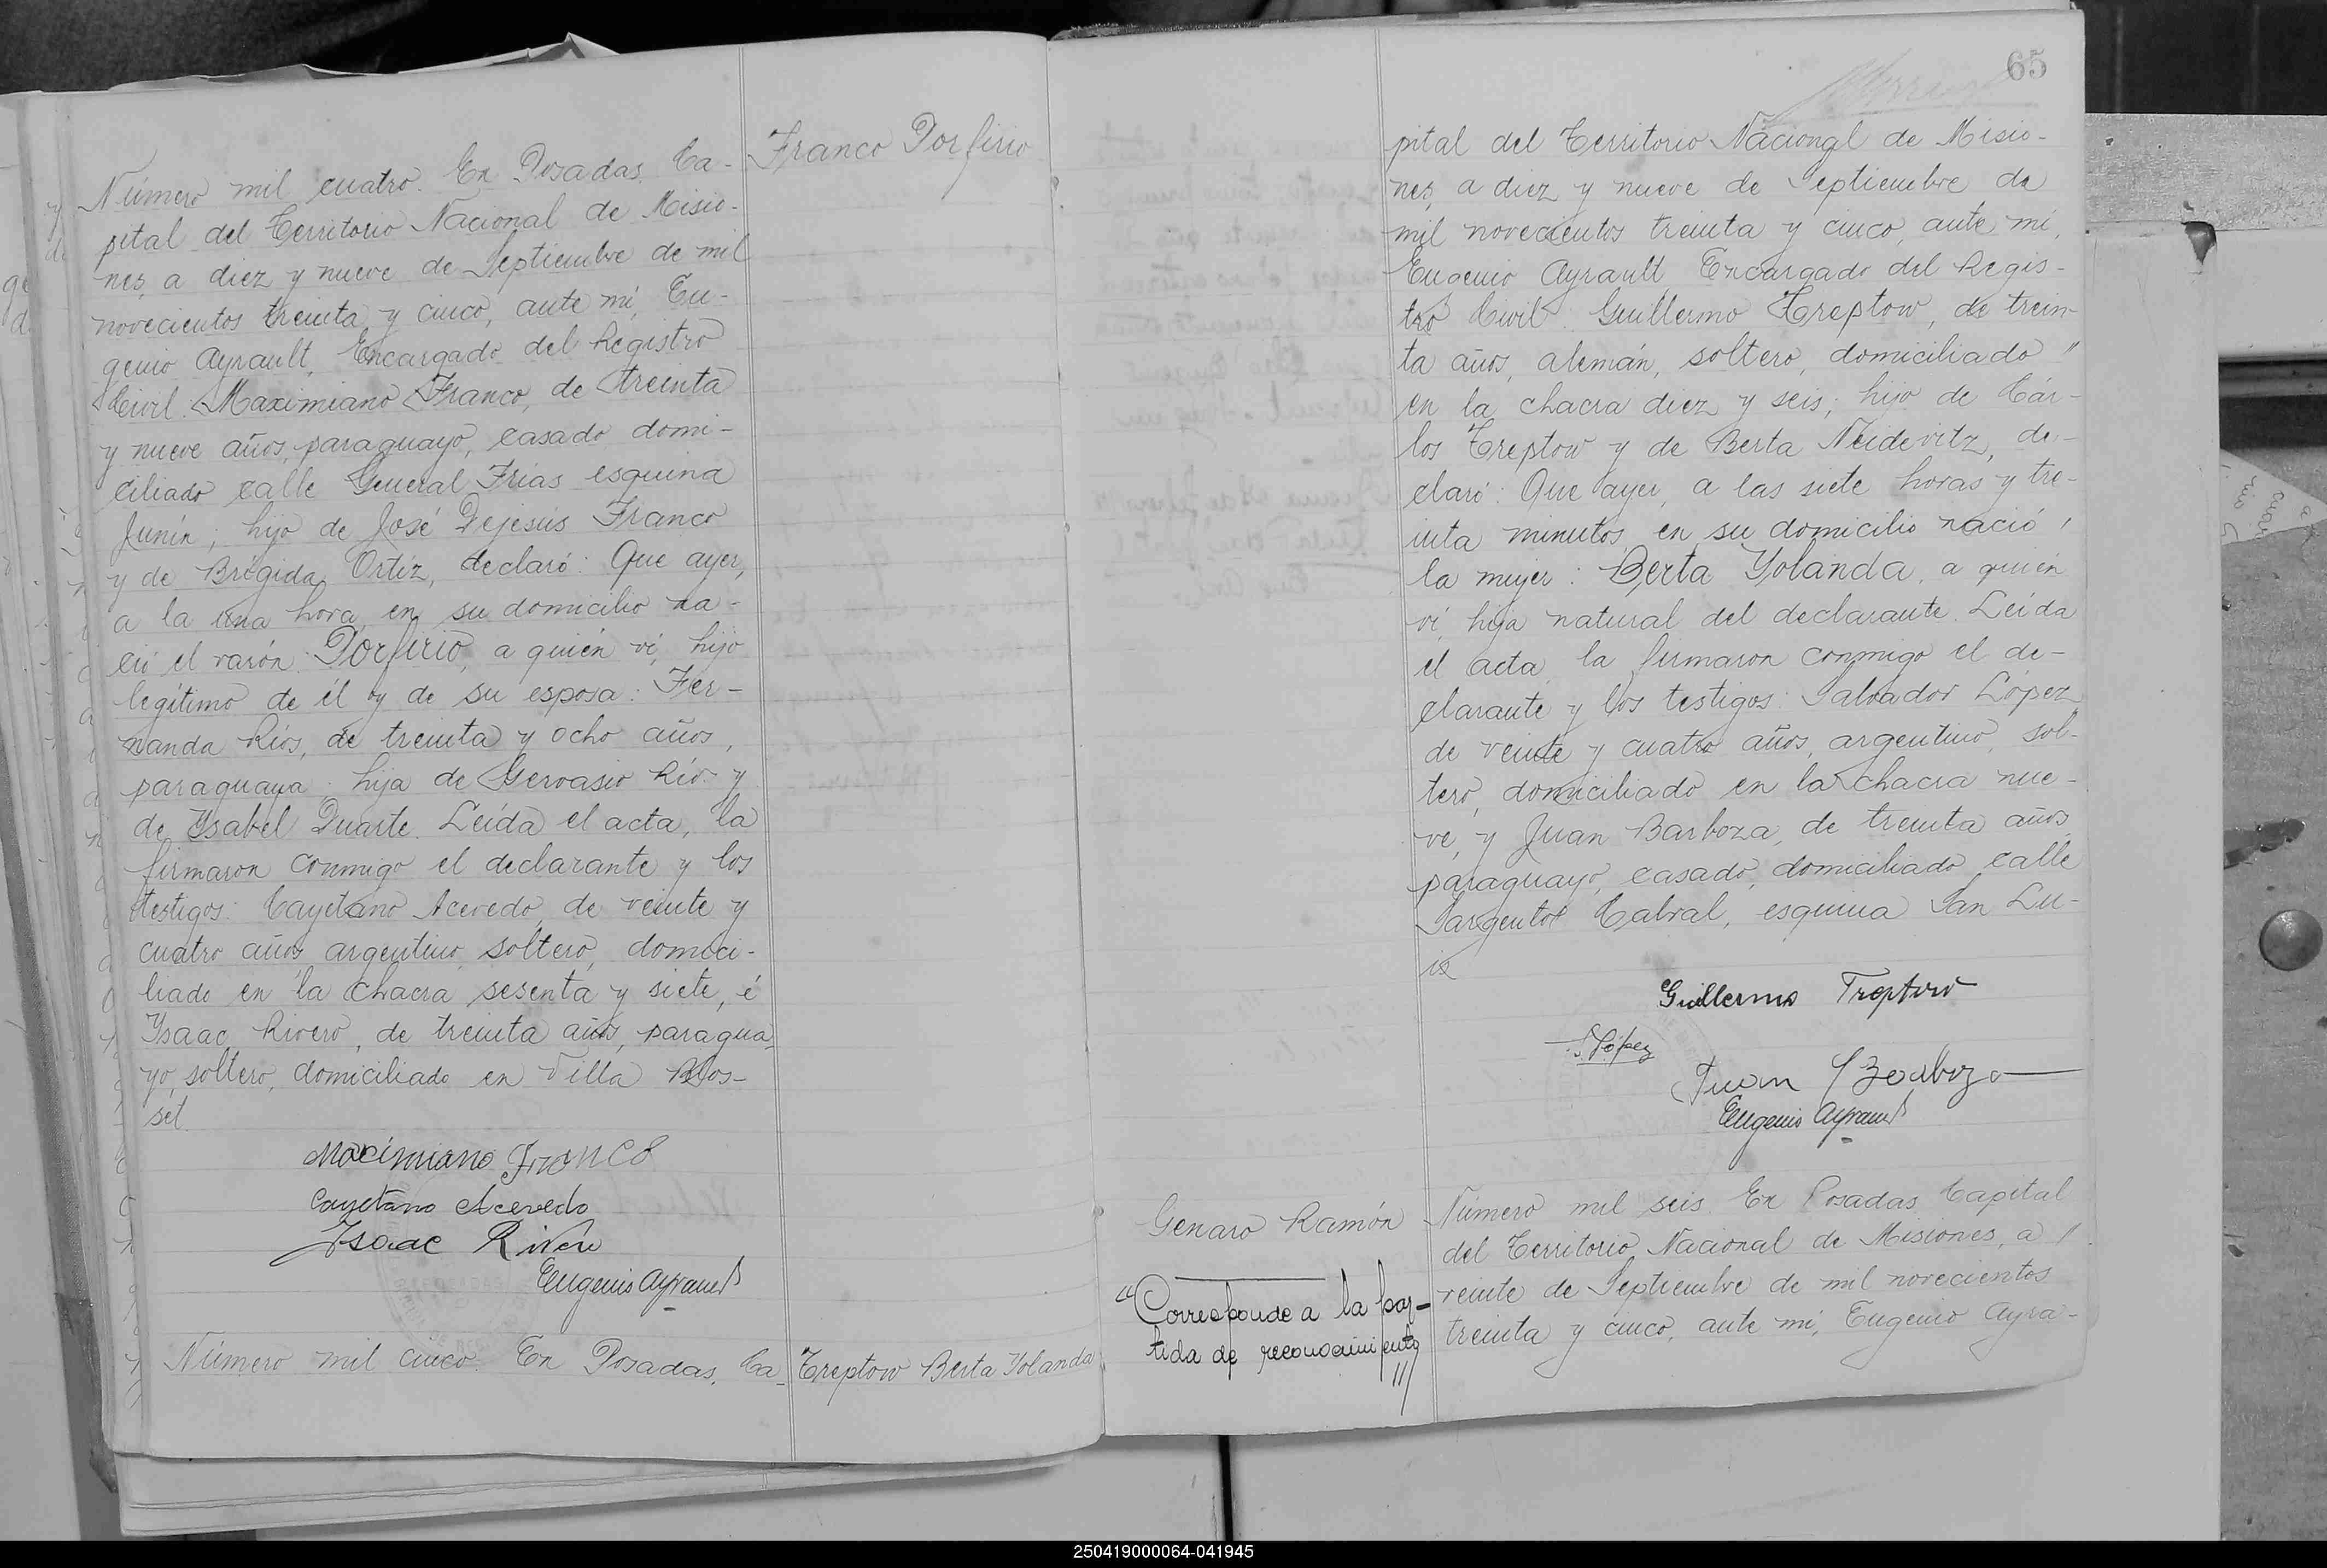 Franco Porfirio
Número mil cuatro. En Posadas, Ca-
pital del Territorio Nacional de Misio-
nes, a diez y nueve de Septiembre de mil
novecientos treinta y cinco, ante mí, Eu-
genio Ayrault, Encargado del Registro
Civil: Maximiano Franco, de treinta
y nueve años, paraguayo, casado domi-
ciliado calle General Frías esquina
Junín; hijo de José Dejesús Franco
y de Brígida Ortíz, declaró: Que ayer,
a la una hora, en su domicilio na-
ció el varón: Porfirio, a quién ví, hijo
legítimo de él y de su esposa: Fer-
nanda Ríos, de treinta y ocho años,
paraguaya: hija de Gervasio Río y
de Ysabel Duarte. Leída el acta, la
firmaron conmigo el declarante y los
testigos: Cayetano Acevedo, de veinte y
cuatro años, argentino, soltero, domici-
liado en la chacra sesenta y siete, é
Ysaac Rivero, de treinta años, paragua-
yo, soltero, domiciliado en Villa Blos-
set.
Maximiano Franco
Cayetano Acevedo
Isaac Rivero
Eugenio Ayrault
Número mil cinco. En Posadas, Ca-
Treptow Berta Yolanda
65
pital del Territorio Nacional de Misio-
nes, a diez y nueve de Septiembre de
mil novecientos treinta y cinco, ante mí,
Eugenio Ayrault Encargado del Regis-
tro Civil: Guillermo Treptow, de trein-
ta años, alemán, soltero, domiciliado "
en la chacra diez y seis; hijo de Cár-
los Treptow y de Berta Neidevitz, de-
claró: Que ayer, a las siete horas y tre-
inta minutos, en su domicilio nació,
la mujer: Berta Yolanda, a quién
ví, hija natural del declarante. Leída
el acta, la firmaron conmigo el de-
clarante y los testigos: Salvador López
de veinte y cuatro años, argentino, sol-
tero, domiciliado en la chacra nue-
ve, y Juan Barboza, de treinta años
paraguayo, casado, domiciliado calle
Sargento Cabral, esquina San Lu-
is
Guillermo Treptow
S. López
Juan Barboza
Eugenio Ayrault
Genaro Ramón
"Corresponde a la par-
tida de reconocimiento
Número mil seis. En Posadas, Capital
del Territorio Nacional de Misiones, a /
veinte de Septiembre de mil novecientos
treinta y cinco, ante mí, Eugenio Ayra-
250419000064-041945